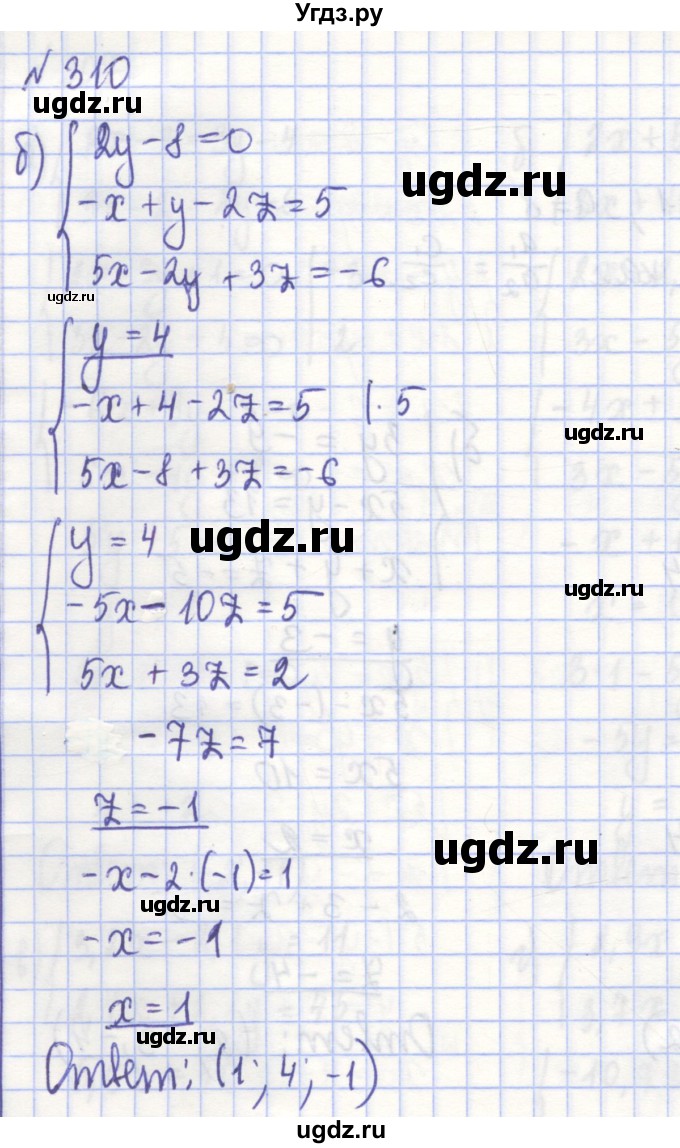 Угдз.ру
№ 310
ugdz.ru
б) 2y - 8 = 0
ugdz.ru
-x + y - 2z = 5
5x - 2y + 3z = -6
ugdz.ru
y = 4
-x + 4 - 2z = 5 | · 5
ugdz.ru
5x - 8 + 3z = -6
y = 4
ugdz.ru
-5x - 10z = 5
ugdz.ru
5x + 3z = 2
-7z = 7
z = -1
ugdz.ru
-x - 2 · (-1) = 1
ugdz.ru
-x = -1
x = 1
ugdz.ru
Ответ: (1; 4; -1)
ugdz.ru